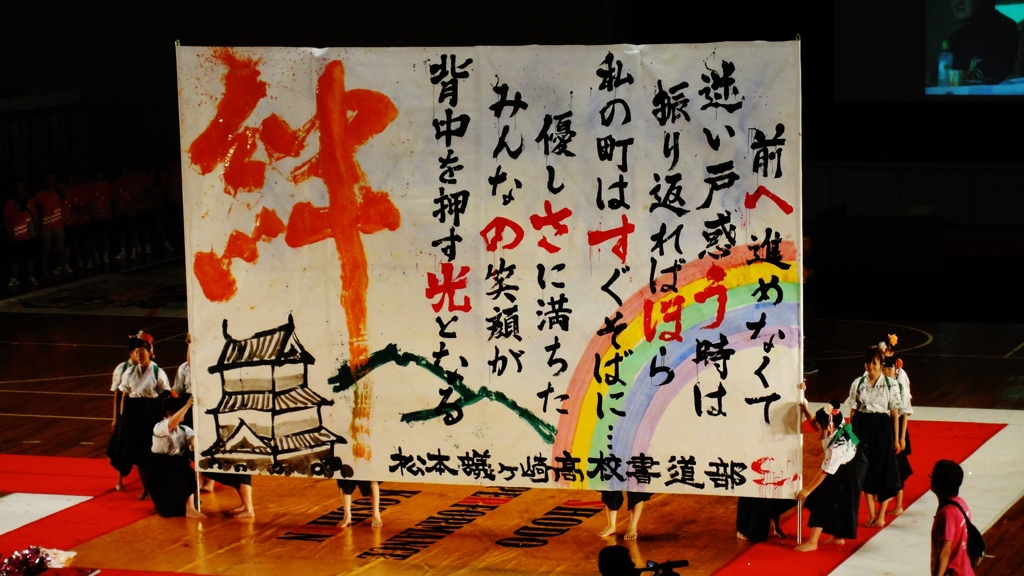 前へ進めなくて
迷い戸惑う時は
振り返ればほら
私の町はすぐそばに…
優しさに満ちた
みんなの笑顔が
背中を押す光となる
絆
松本蟻ヶ崎高校書道部
SHODO
PERFORMANCE
KOSHIEN